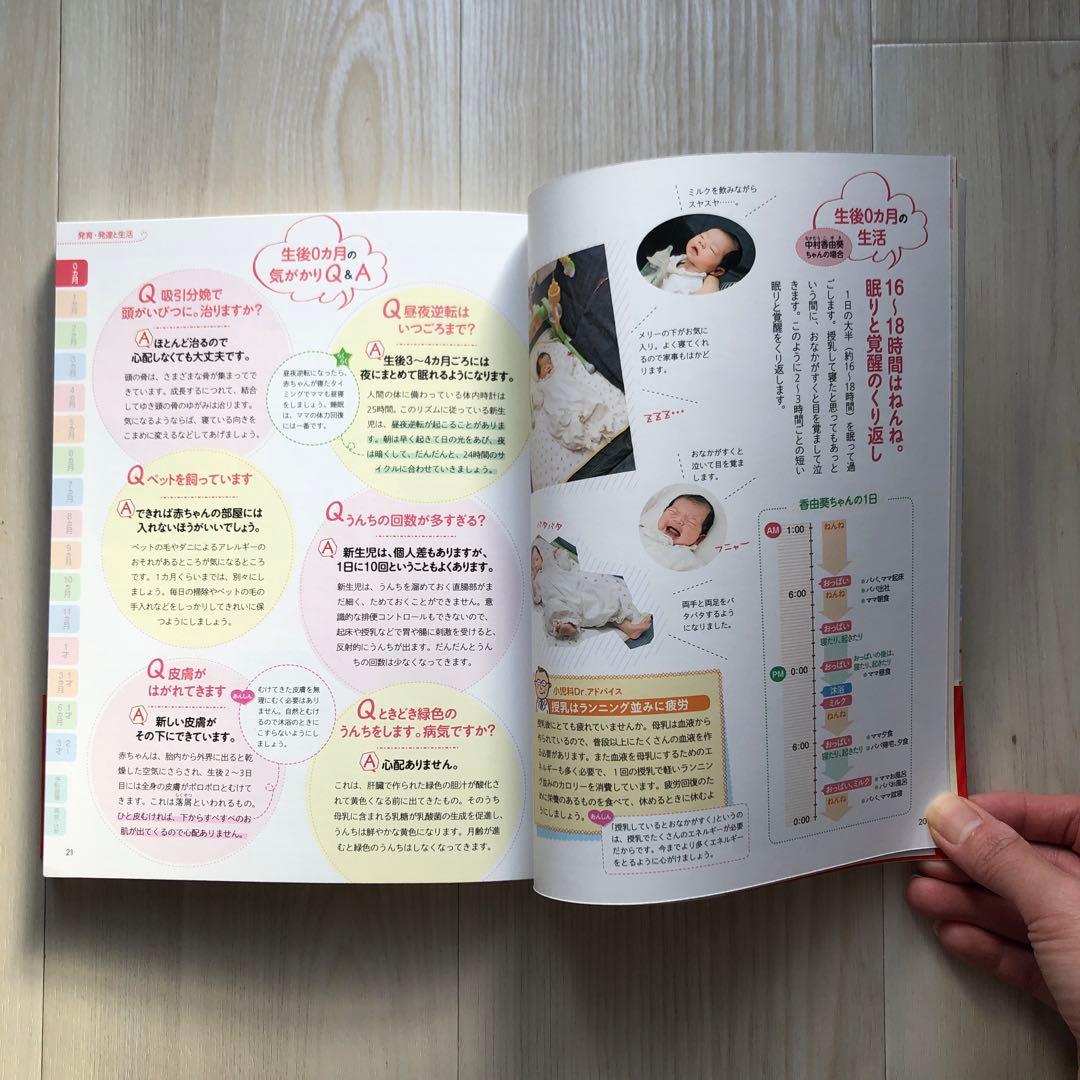 生後0カ月の
生活
なかむらこずき
中村香由葵
ちゃんの場合
16〜18時間はねんね。
眠りと覚醒のくり返し
1日の大半（約16〜18時間）を眠って過
ごします。授乳して寝たと思ってもあっと
いう間に、おなかがすくと目を覚まして泣
きます。このように2〜3時間ごとの短い
眠りと覚醒をくり返します。
ミルクを飲みながら
スヤスヤ……。
メリーの下がお気に
入り。よく寝てくれ
るので家事もはかど
ります。
ZZZ...
おなかがすくと
泣いて目を覚ま
します。
フニャー
バタバタ
両手と両足をバ
タバタするよう
になりました。
香由葵ちゃんの1日
AM
1:00
ねんね
おっぱい
※パパ、ママ起床
6:00
ねんね
※パパ出社
※ママ朝食
おっぱい
寝たり、起きたり
PM
0:00
おっぱい
おっぱいの後は、
寝たり、起きたり
※ママ昼食
沐浴
ミルク
ねんね
6:00
おっぱい
寝たり、起きたり
※ママ夕食
※パパ帰宅、夕食
おっぱい、ミルク
※ママお風呂
※パパお風呂
ねんね
※パパ、ママ就寝
0:00
小児科Dr.アドバイス
授乳はランニング並みに疲労
授乳後にとても疲れていませんか。母乳は血液から
作られているので、普段以上にたくさんの血液を作
る必要があります。また血液を母乳にするためのエ
ネルギーも多く必要で、1回の授乳で軽いランニン
グ並みのカロリーを消費しています。疲労回復のた
めに栄養のあるものを食べて、休めるときに休むよ
うにしましょう。
あんしん
「授乳しているとおなかがすく」というの
は、授乳でたくさんのエネルギーが必要
だからです。今までより多くエネルギー
をとるように心がけましょう。
20
発育・発達と生活
0カ月
1カ月
2カ月
3カ月
4カ月
5カ月
6カ月
7カ月
8カ月
9カ月
10カ月
11カ月
1才
1才3カ月
1才6カ月
生後0カ月の
気がかりQ&A
Q 吸引分娩で
頭がいびつに。治りますか?
A ほとんど治るので
心配しなくても大丈夫です。
頭の骨は、さまざまな骨が集まってで
きています。成長するにつれて、結合
してゆき頭の骨のゆがみは治ります。
気になるようならば、寝ている向きを
こまめに変えるなどしてあげましょう。
Q 昼夜逆転は
いつごろまで?
A 生後3〜4カ月ごろには
夜にまとめて眠れるようになります。
人間の体に備わっている体内時計は
25時間。このリズムに従っている新生
児は、昼夜逆転が起こることがありま
す。朝は早く起きて日の光をあび、夜
は暗くして、だんだんと、24時間のサ
イクルに合わせていきましょう。
昼夜逆転になったら、
赤ちゃんが寝たタイ
ミングでママも昼寝
をしましょう。睡眠
は、ママの体力回復
には一番です。
Q ペットを飼っています
A できれば赤ちゃんの部屋には
入れないほうがいいでしょう。
ペットの毛やダニによるアレルギーの
おそれがあるところが気になるところ
です。1カ月くらいまでは、別々にし
ましょう。毎日の掃除やペットの毛の
手入れなどをしっかりしてきれいに保
つようにしましょう。
Q うんちの回数が多すぎる?
A 新生児は、個人差もありますが、
1日に10回ということもよくあります。
新生児は、うんちを溜めておく直腸部がま
だ細く、ためておくことができません。意
識的な排便コントロールもできないので、
起床や授乳などで胃や腸に刺激を受けると、
反射的にうんちが出ます。だんだんとうん
ちの回数は少なくなってきます。
Q 皮膚が
はがれてきます
A 新しい皮膚が
その下にできています。
赤ちゃんは、胎内から外界に出ると乾
燥した空気にさらされ、生後2〜3日
目には全身の皮膚がボロボロとむけて
らくせつ
きます。これは落屑といわれるもの。
ひと皮むければ、下からすべすべのお
肌が出てくるので心配ありません。
あんしん
むけてきた皮膚を無
理にむく必要はあり
ません。自然とむけ
るので沐浴のときに
こすらないようにし
ましょう。
Q ときどき緑色の
うんちをします。病気ですか?
A 心配ありません。
これは、肝臓で作られた緑色の胆汁が酸化さ
れて黄色くなる前に出てきたもの。そのうち
母乳に含まれる乳糖が乳酸菌の生成を促進し、
うんちは鮮やかな黄色になります。月齢が進
むと緑色のうんちはしなくなってきます。
21